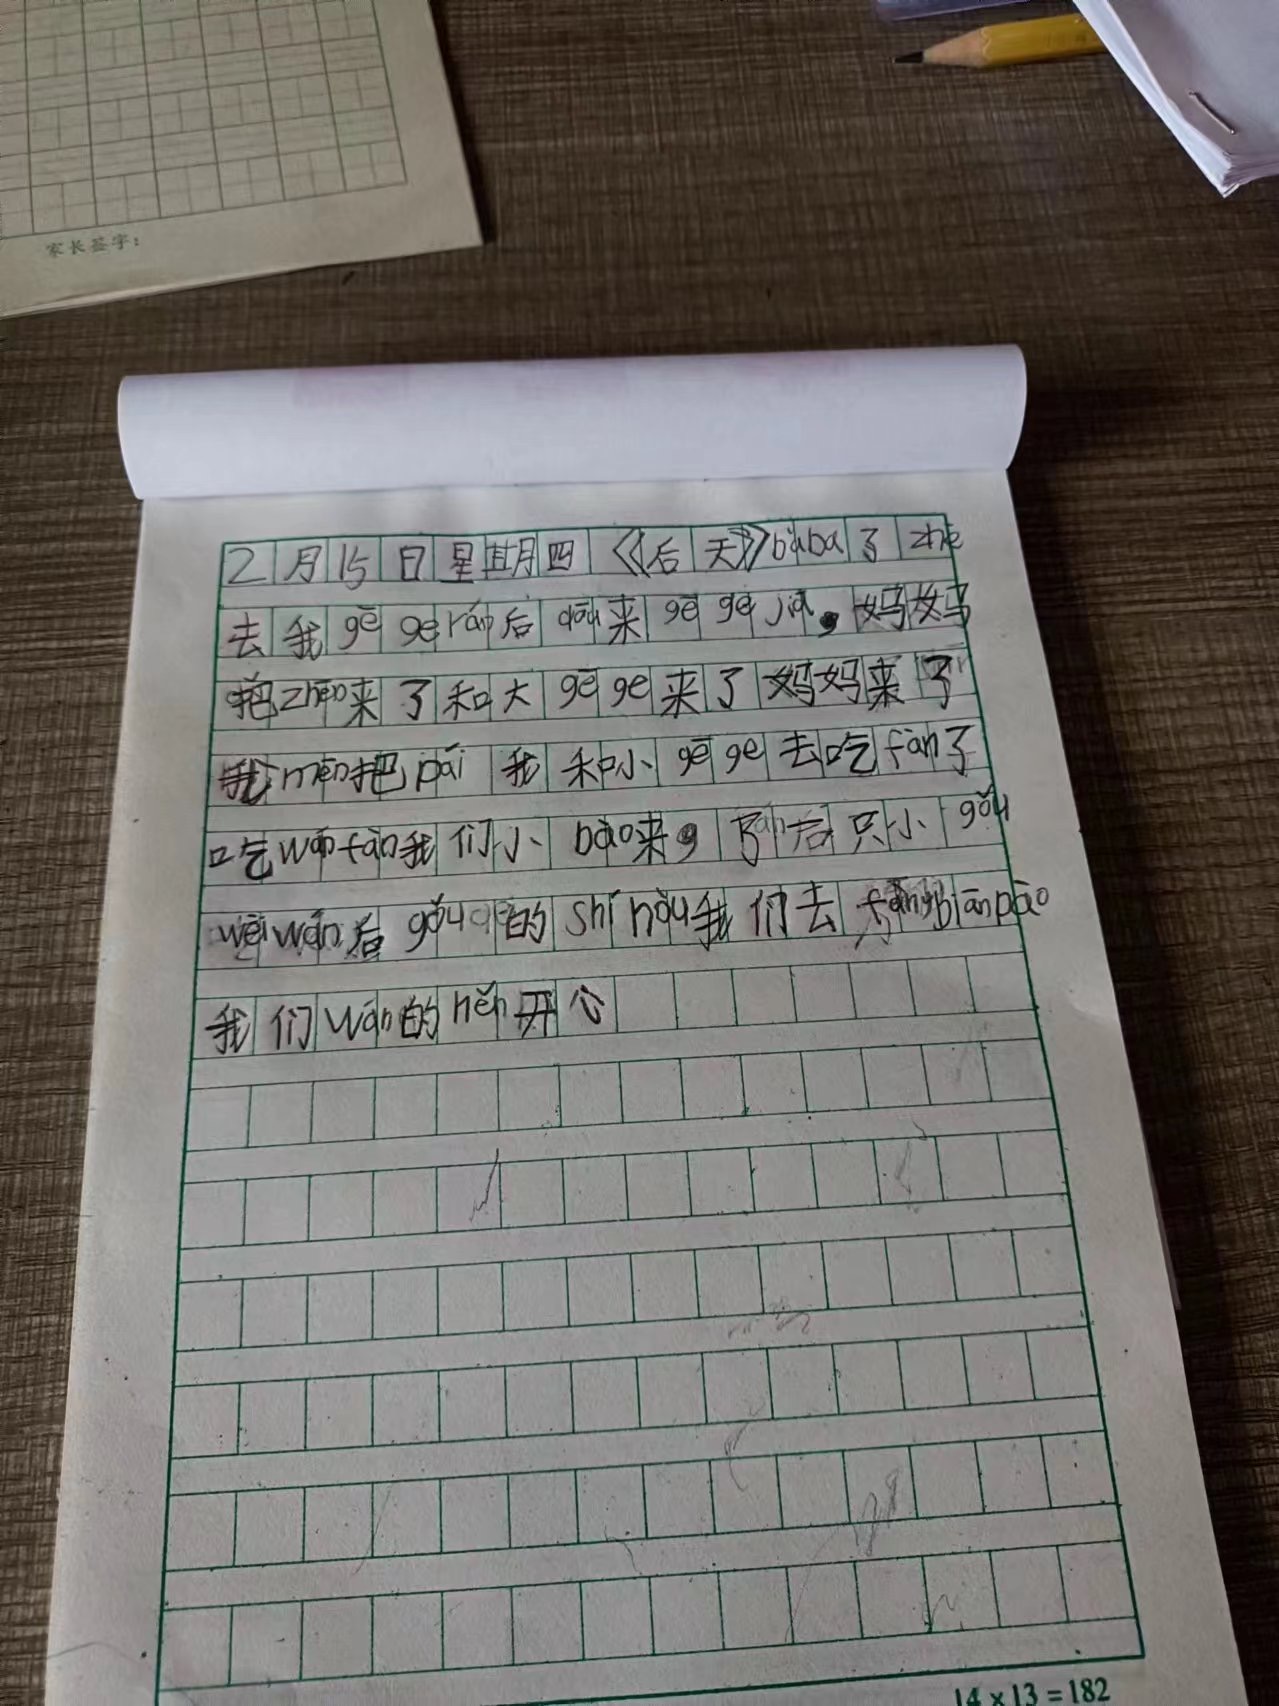 家长签字：
2月15日星期四《后天》bàba了zhè
去我gēge rán后dōu来gēge jiā，妈妈
把zhēn来了和大gēge来了妈妈来了
我mēn把pái我和小gēge去吃fàn了
吃wǎnfàn我们小bào来 后只小gǒu
wèi wán后gǒu的shí hòu我们去fàngbiānpào
我们wán的hěn开心
14×13=182